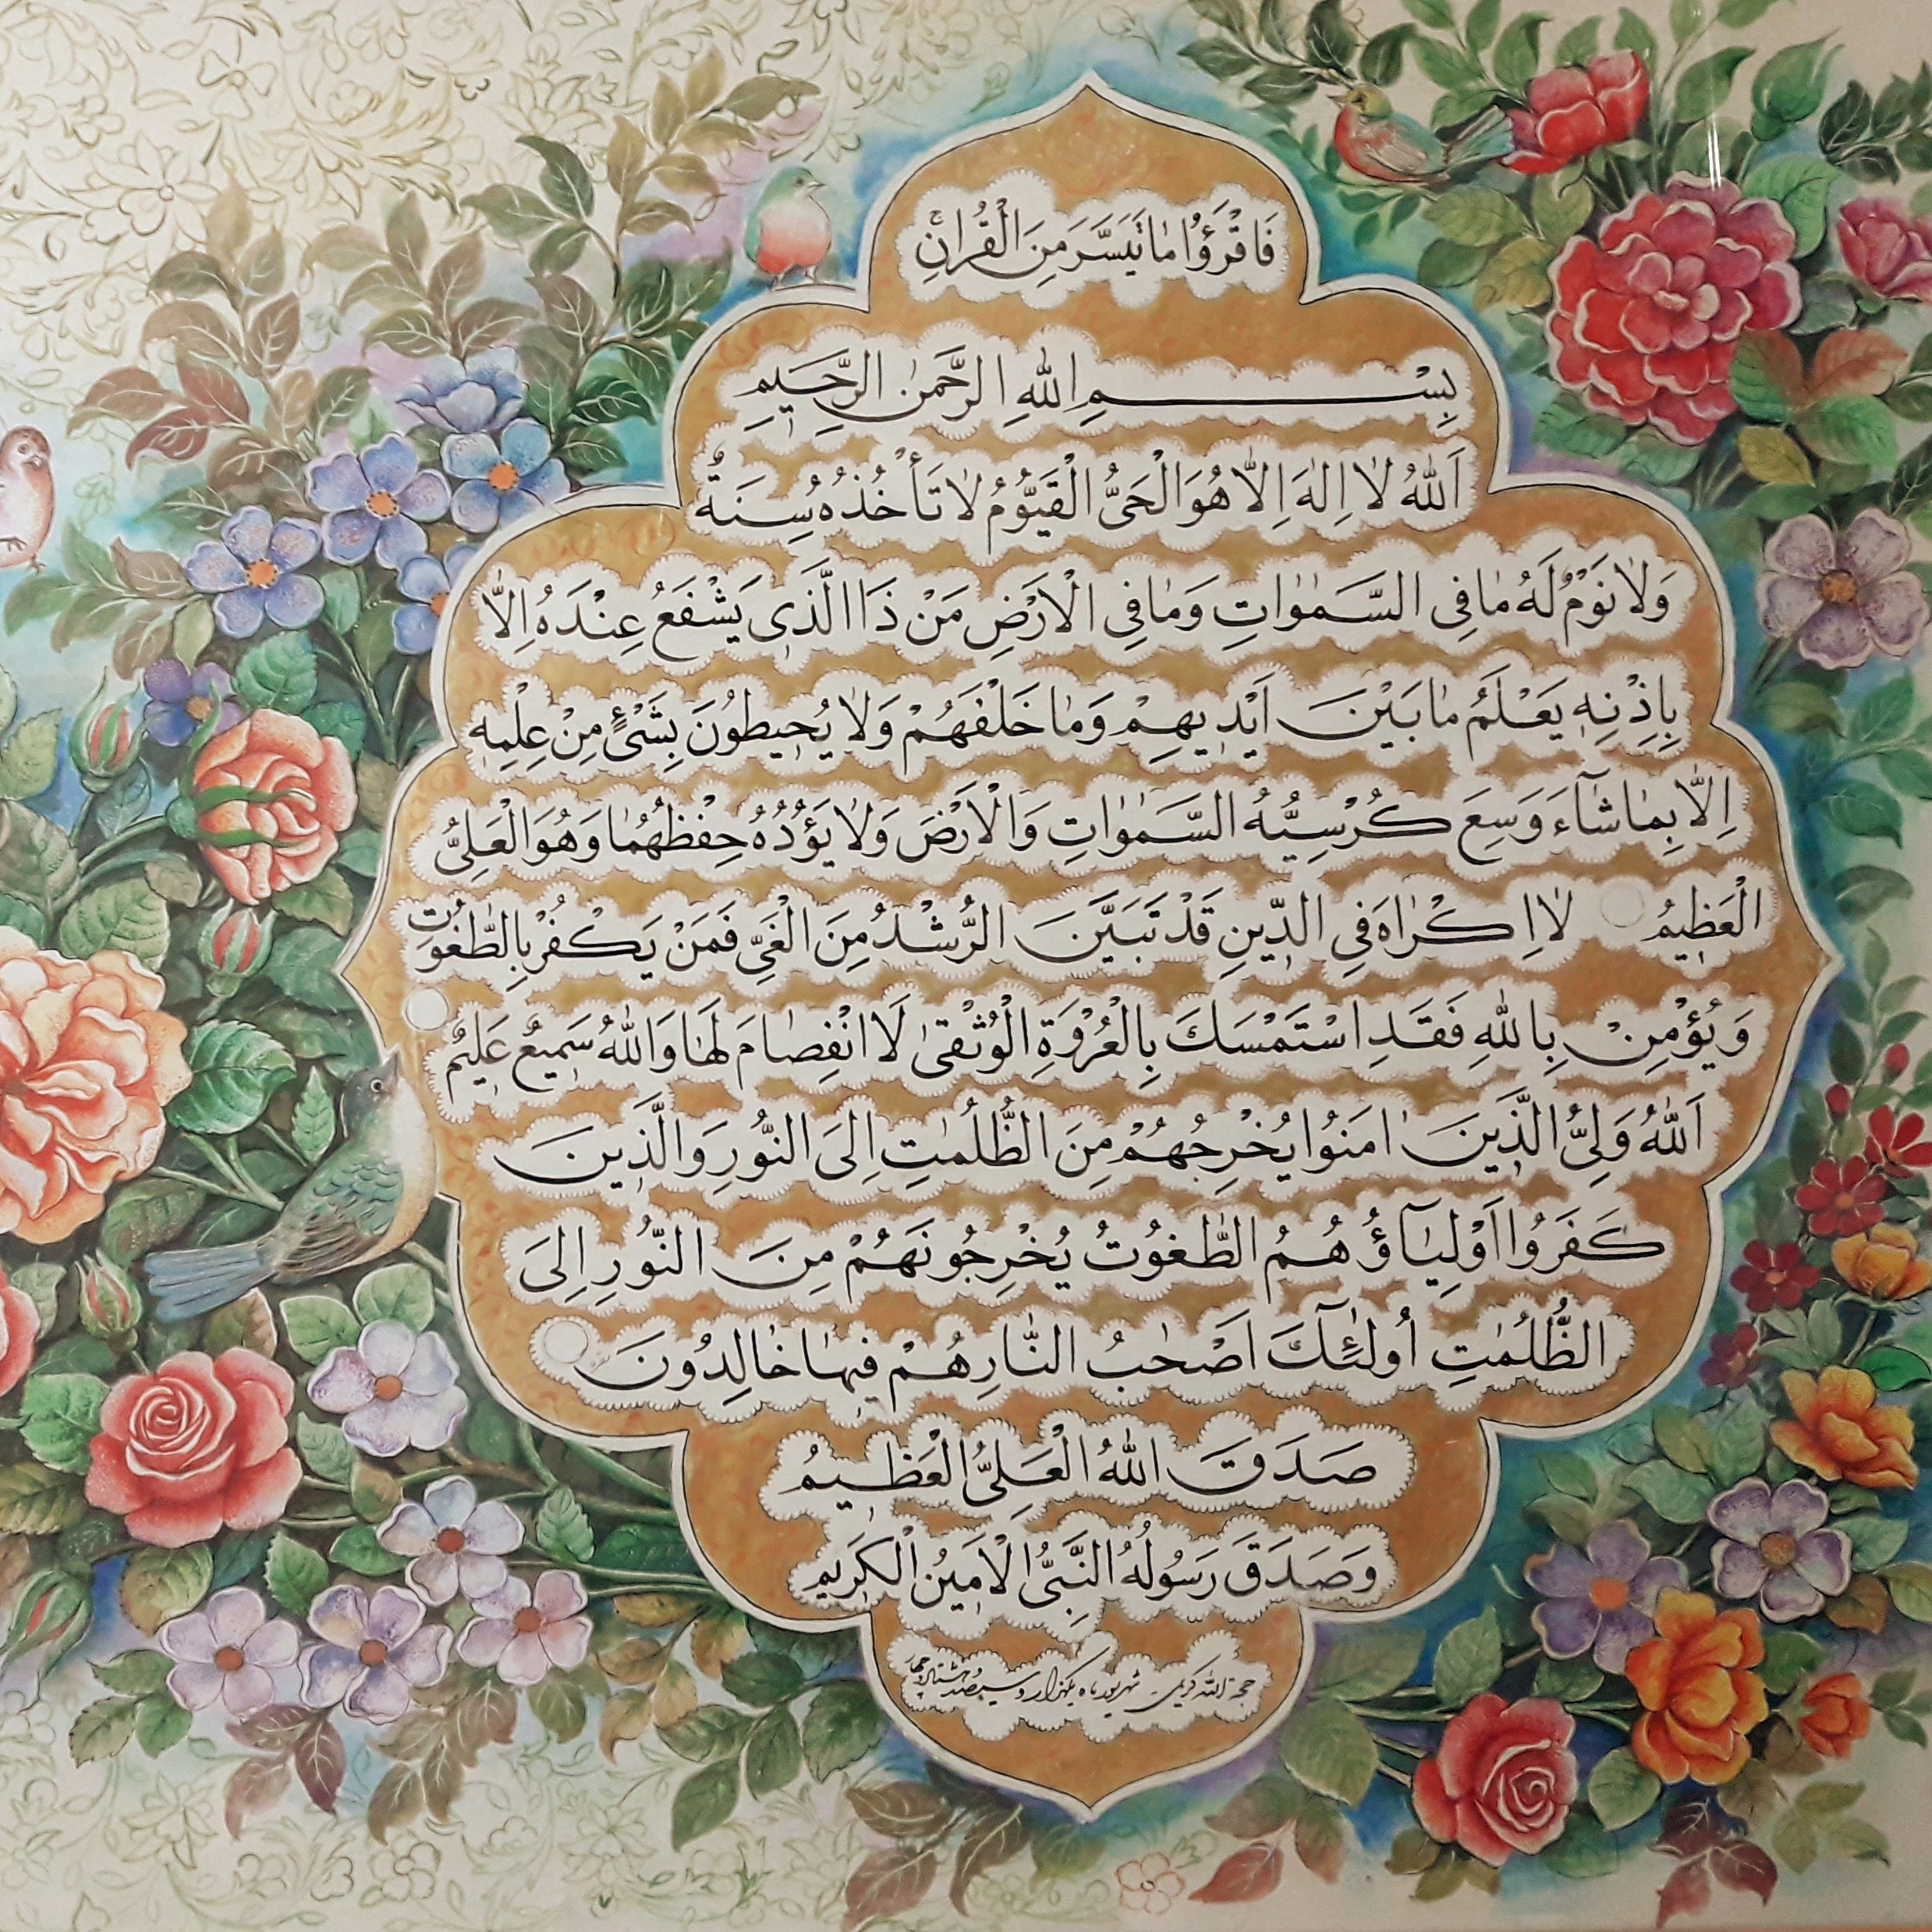 فَاقْرَؤُا مٰا تَيَسَّرَ مِنَ الْقُرْاٰنِ
بِسْمِ اللّٰهِ الرَّحْمٰنِ الرَّحِيمِ
اَللّٰهُ لٰا اِلٰهَ اِلّٰا هُوَ الْحَىُّ الْقَيُّومُ لٰا تَأْخُذُهُ سِنَةٌ
وَلٰا نَوْمٌ لَهُ مٰا فِى السَّمٰوٰاتِ وَمٰا فِى الْاَرْضِ مَنْ ذَا الَّذٖى يَشْفَعُ عِنْدَهُ اِلّٰا
بِاِذْنِهٖ يَعْلَمُ مٰا بَيْنَ اَيْدٖيهِمْ وَمٰا خَلْفَهُمْ وَلٰا يُحٖيطُونَ بِشَىْءٍ مِنْ عِلْمِهٖ
اِلّٰا بِمٰا شٰآءَ وَسِعَ كُرْسِيُّهُ السَّمٰوٰاتِ وَالْاَرْضَ وَلٰا يَؤُدُهُ حِفْظُهُمٰا وَهُوَ الْعَلِىُّ
الْعَظٖيمُ لٰا اِكْرٰاهَ فِى الدّٖينِ قَدْ تَبَيَّنَ الرُّشْدُ مِنَ الْغَىِّ فَمَنْ يَكْفُرْ بِالطّٰغُوتِ
وَيُؤْمِنْ بِاللّٰهِ فَقَدِ اسْتَمْسَكَ بِالْعُرْوَةِ الْوُثْقىٰ لَا انْفِصٰامَ لَهٰا وَاللّٰهُ سَمٖيعٌ عَلٖيمٌ
اَللّٰهُ وَلِىُّ الَّذٖينَ اٰمَنُوا يُخْرِجُهُمْ مِنَ الظُّلُمٰتِ اِلَى النُّورِ وَالَّذٖينَ
كَفَرُوا اَوْلِيٰآؤُهُمُ الطّٰغُوتُ يُخْرِجُونَهُمْ مِنَ النُّورِ اِلَى
الظُّلُمٰتِ اُولٰٓئِكَ اَصْحٰبُ النّٰارِ هُمْ فٖيهٰا خٰالِدُونَ
صَدَقَ اللّٰهُ الْعَلِىُّ الْعَظٖيمُ
وَصَدَقَ رَسُولُهُ النَّبِىُّ الْاَمٖينُ الْكَرٖيمِ
حجة الله کریمی - شهریور ماه یکهزار و سیصد